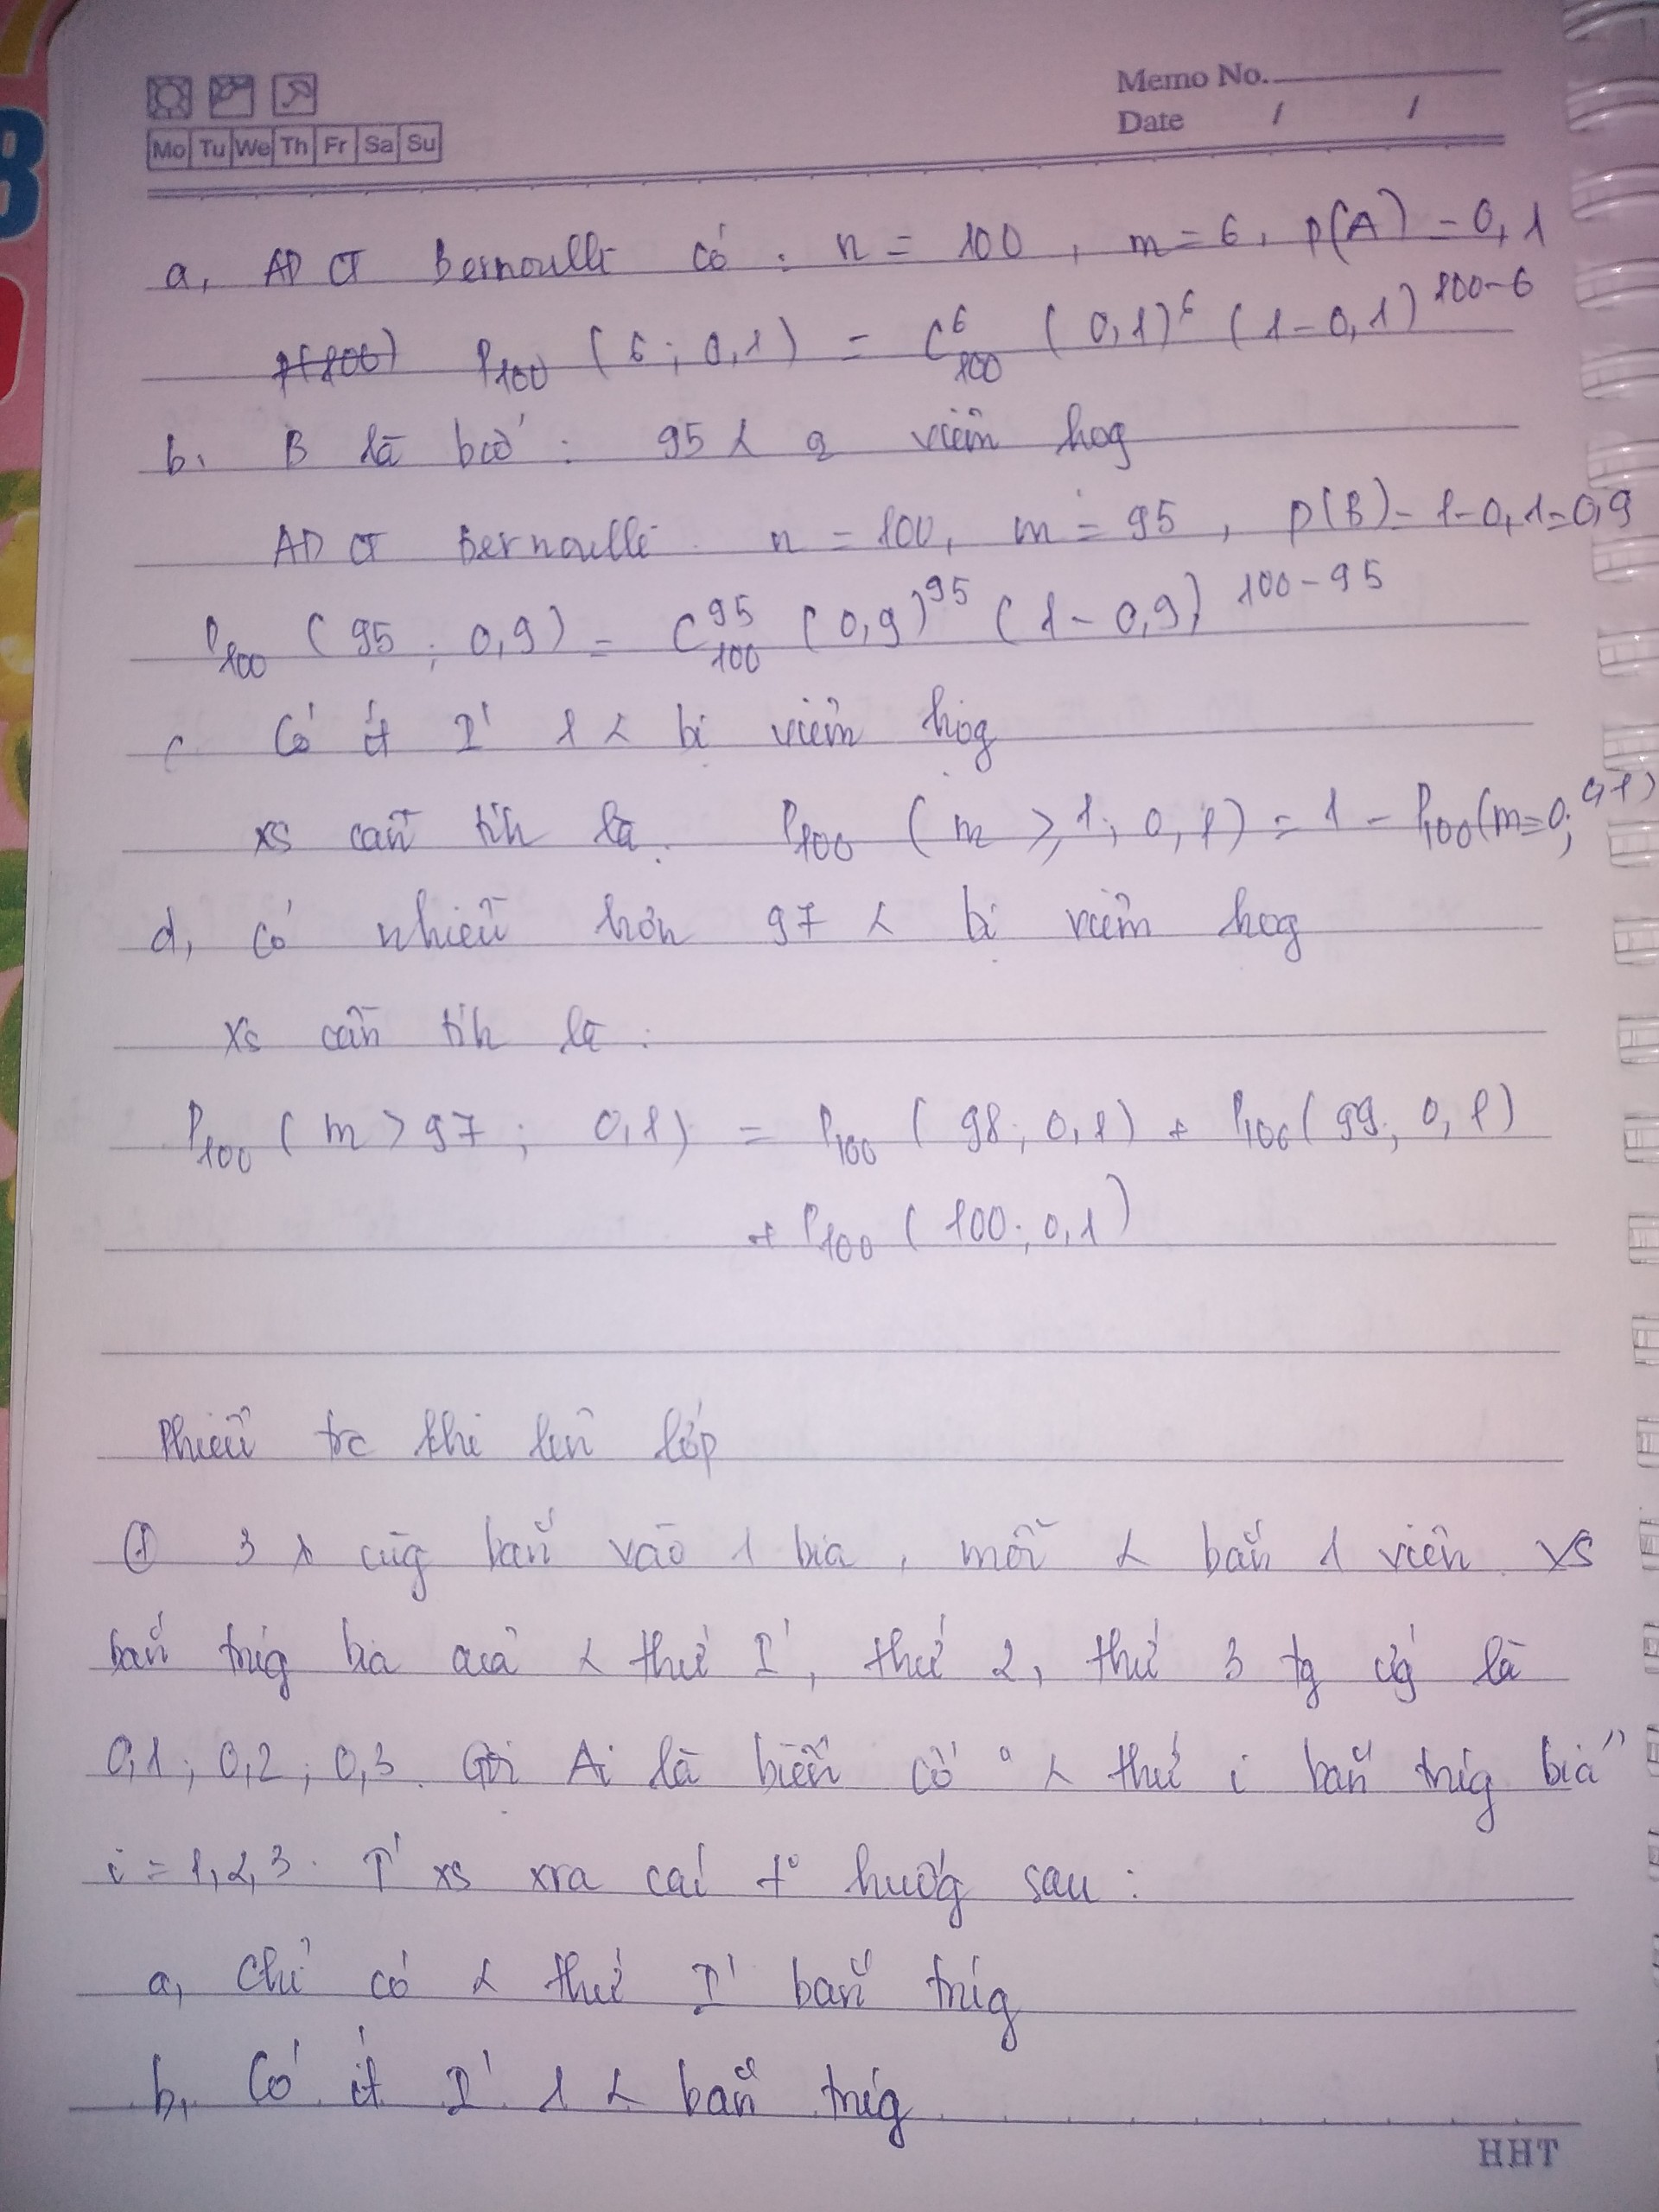 Memo No.
Mo Tu We Th Fr Sa Su
Date / /
a, AD CT Bernoulli có : n = 100 , m = 6 , P(A) = 0,1
P(100) P₁₀₀ ( 6 ; 0,1 ) = C⁶₁₀₀ ( 0,1 )⁶ ( 1 - 0,1 )¹⁰⁰⁻⁶
b, B là bcố : 95 ㅅ 0 viêm họg
AD CT Bernoulli n = 100, m = 95 , P(B) = 1-0,1=0,9
P₁₀₀ ( 95 ; 0,9 ) = C⁹⁵₁₀₀ ( 0,9 )⁹⁵ ( 1 - 0,9 )¹⁰⁰⁻⁹⁵
c Có ít I' 1 ㅅ bị viêm họg
xs cần tíh là : P₁₀₀ ( m ≥ 1 ; 0,1 ) = 1 - P₁₀₀(m=0; 0,1)
d, Có nhiều hơn 97 ㅅ bị viêm họg
xs cần tíh là :
P₁₀₀ ( m > 97 ; 0,1 ) = P₁₀₀ ( 98 ; 0,1 ) + P₁₀₀ ( 99 ; 0,1 )
+ P₁₀₀ ( 100 ; 0,1 )
Phiếu trc khi lên lớp
① 3 ㅅ cùg bắn vào 1 bia , mỗi ㅅ bắn 1 viên . XS
bắn trúg bia của ㅅ thứ I', thứ 2, thứ 3 tg ứg là
0,1 ; 0,2 ; 0,3 . Gọi Ai là biến cố " ㅅ thứ i bắn trúg bia"
i = 1, 2, 3 . T' xs xra các t° huốg sau :
a, Chỉ có ㅅ thứ I' bắn trúg
b, Có ít I' 1 ㅅ bắn trúg
HHT